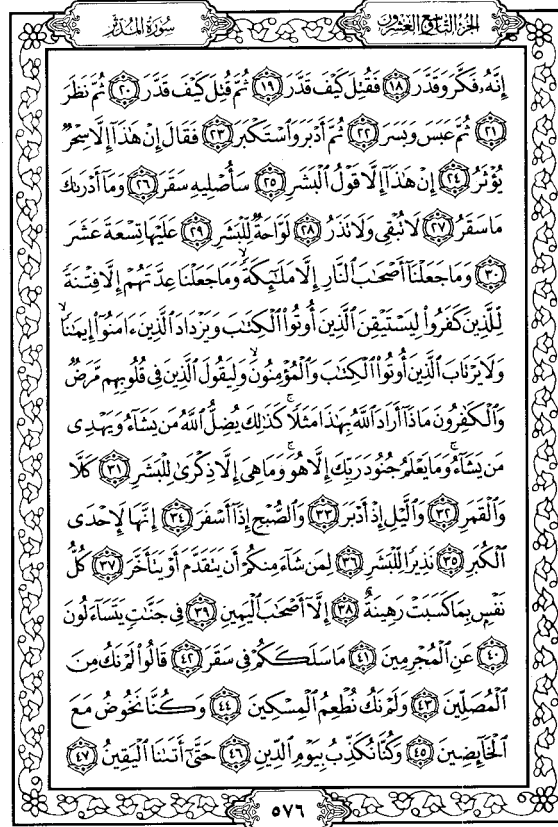 الجزء التاسع والعشرون
سورة المدثر
إِنَّهُۥ فَكَّرَ وَقَدَّرَ ﴿١٨﴾ فَقُتِلَ كَيْفَ قَدَّرَ ﴿١٩﴾ ثُمَّ قُتِلَ كَيْفَ قَدَّرَ ﴿٢٠﴾ ثُمَّ نَظَرَ
﴿٢١﴾ ثُمَّ عَبَسَ وَبَسَرَ ﴿٢٢﴾ ثُمَّ أَدْبَرَ وَٱسْتَكْبَرَ ﴿٢٣﴾ فَقَالَ إِنْ هَٰذَآ إِلَّا سِحْرٌ
يُؤْثَرُ ﴿٢٤﴾ إِنْ هَٰذَآ إِلَّا قَوْلُ ٱلْبَشَرِ ﴿٢٥﴾ سَأُصْلِيهِ سَقَرَ ﴿٢٦﴾ وَمَآ أَدْرَىٰكَ
مَا سَقَرُ ﴿٢٧﴾ لَا تُبْقِى وَلَا تَذَرُ ﴿٢٨﴾ لَوَّاحَةٌ لِّلْبَشَرِ ﴿٢٩﴾ عَلَيْهَا تِسْعَةَ عَشَرَ
﴿٣٠﴾ وَمَا جَعَلْنَآ أَصْحَٰبَ ٱلنَّارِ إِلَّا مَلَٰٓئِكَةً ۙ وَمَا جَعَلْنَا عِدَّتَهُمْ إِلَّا فِتْنَةً
لِّلَّذِينَ كَفَرُوا۟ لِيَسْتَيْقِنَ ٱلَّذِينَ أُوتُوا۟ ٱلْكِتَٰبَ وَيَزْدَادَ ٱلَّذِينَ ءَامَنُوٓا۟ إِيمَٰنًا ۙ
وَلَا يَرْتَابَ ٱلَّذِينَ أُوتُوا۟ ٱلْكِتَٰبَ وَٱلْمُؤْمِنُونَ ۙ وَلِيَقُولَ ٱلَّذِينَ فِى قُلُوبِهِم مَّرَضٌ
وَٱلْكَٰفِرُونَ مَاذَآ أَرَادَ ٱللَّهُ بِهَٰذَا مَثَلًا ۚ كَذَٰلِكَ يُضِلُّ ٱللَّهُ مَن يَشَآءُ وَيَهْدِى
مَن يَشَآءُ ۚ وَمَا يَعْلَمُ جُنُودَ رَبِّكَ إِلَّا هُوَ ۚ وَمَا هِىَ إِلَّا ذِكْرَىٰ لِلْبَشَرِ ﴿٣١﴾ كَلَّا
وَٱلْقَمَرِ ﴿٣٢﴾ وَٱلَّيْلِ إِذْ أَدْبَرَ ﴿٣٣﴾ وَٱلصُّبْحِ إِذَآ أَسْفَرَ ﴿٣٤﴾ إِنَّهَا لَإِحْدَى
ٱلْكُبَرِ ﴿٣٥﴾ نَذِيرًا لِّلْبَشَرِ ﴿٣٦﴾ لِمَن شَآءَ مِنكُمْ أَن يَتَقَدَّمَ أَوْ يَتَأَخَّرَ ﴿٣٧﴾ كُلُّ
نَفْسٍۭ بِمَا كَسَبَتْ رَهِينَةٌ ﴿٣٨﴾ إِلَّآ أَصْحَٰبَ ٱلْيَمِينِ ﴿٣٩﴾ فِى جَنَّٰتٍ يَتَسَآءَلُونَ
﴿٤٠﴾ عَنِ ٱلْمُجْرِمِينَ ﴿٤١﴾ مَا سَلَكَكُمْ فِى سَقَرَ ﴿٤٢﴾ قَالُوا۟ لَمْ نَكُ مِنَ
ٱلْمُصَلِّينَ ﴿٤٣﴾ وَلَمْ نَكُ نُطْعِمُ ٱلْمِسْكِينَ ﴿٤٤﴾ وَكُنَّا نَخُوضُ مَعَ
ٱلْخَآئِضِينَ ﴿٤٥﴾ وَكُنَّا نُكَذِّبُ بِيَوْمِ ٱلدِّينِ ﴿٤٦﴾ حَتَّىٰٓ أَتَىٰنَا ٱلْيَقِينُ ﴿٤٧﴾
٥٧٦